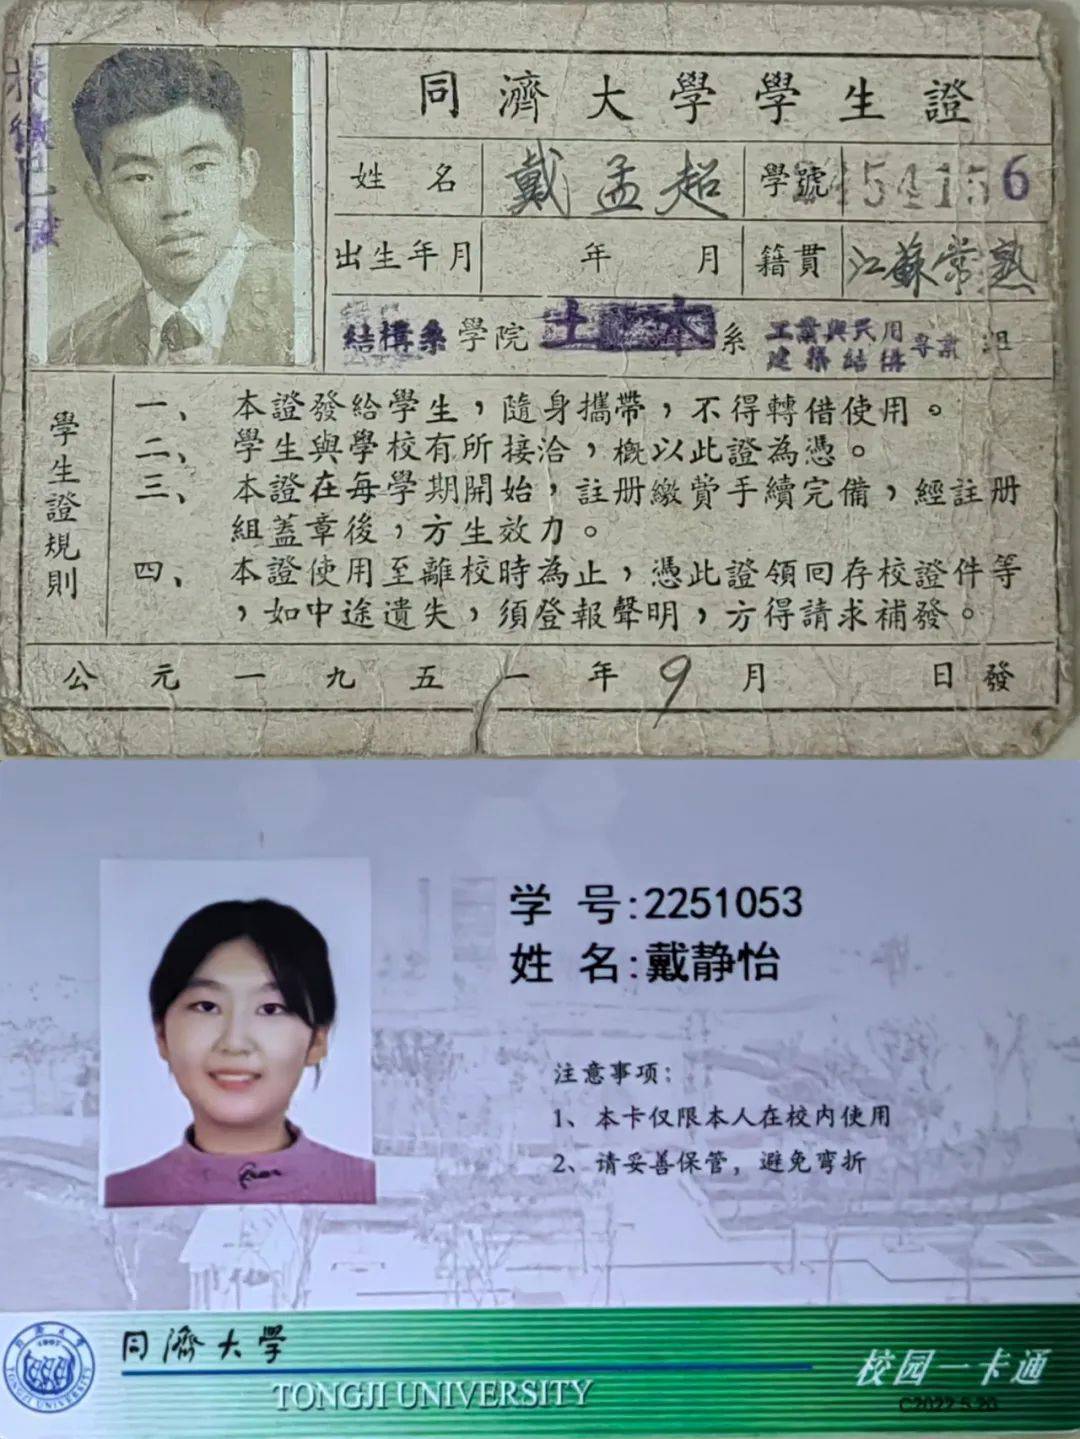 同濟大學學生證
姓名 戴孟超 學號 454156
出生年月 年 月 籍貫 江蘇常熟
結構系 學院 土木 系 工業與民用建築結構專業 組
學生證規則
一、本證發給學生，隨身攜帶，不得轉借使用。
二、學生與學校有所接洽，概以此證為憑。
三、本證在每學期開始，註册繳費手續完備，經註册
組蓋章後，方生效力。
四、本證使用至離校時為止，憑此證領回存校證件等
，如中途遺失，須登報聲明，方得請求補發。
公元一九五一年9月 日發
学 号:2251053
姓 名:戴静怡
注意事项：
1、本卡仅限本人在校内使用
2、请妥善保管，避免弯折
同濟大學
TONGJI UNIVERSITY
校园一卡通
C2022.5.20
1907
TONGJI UNIVERSITY